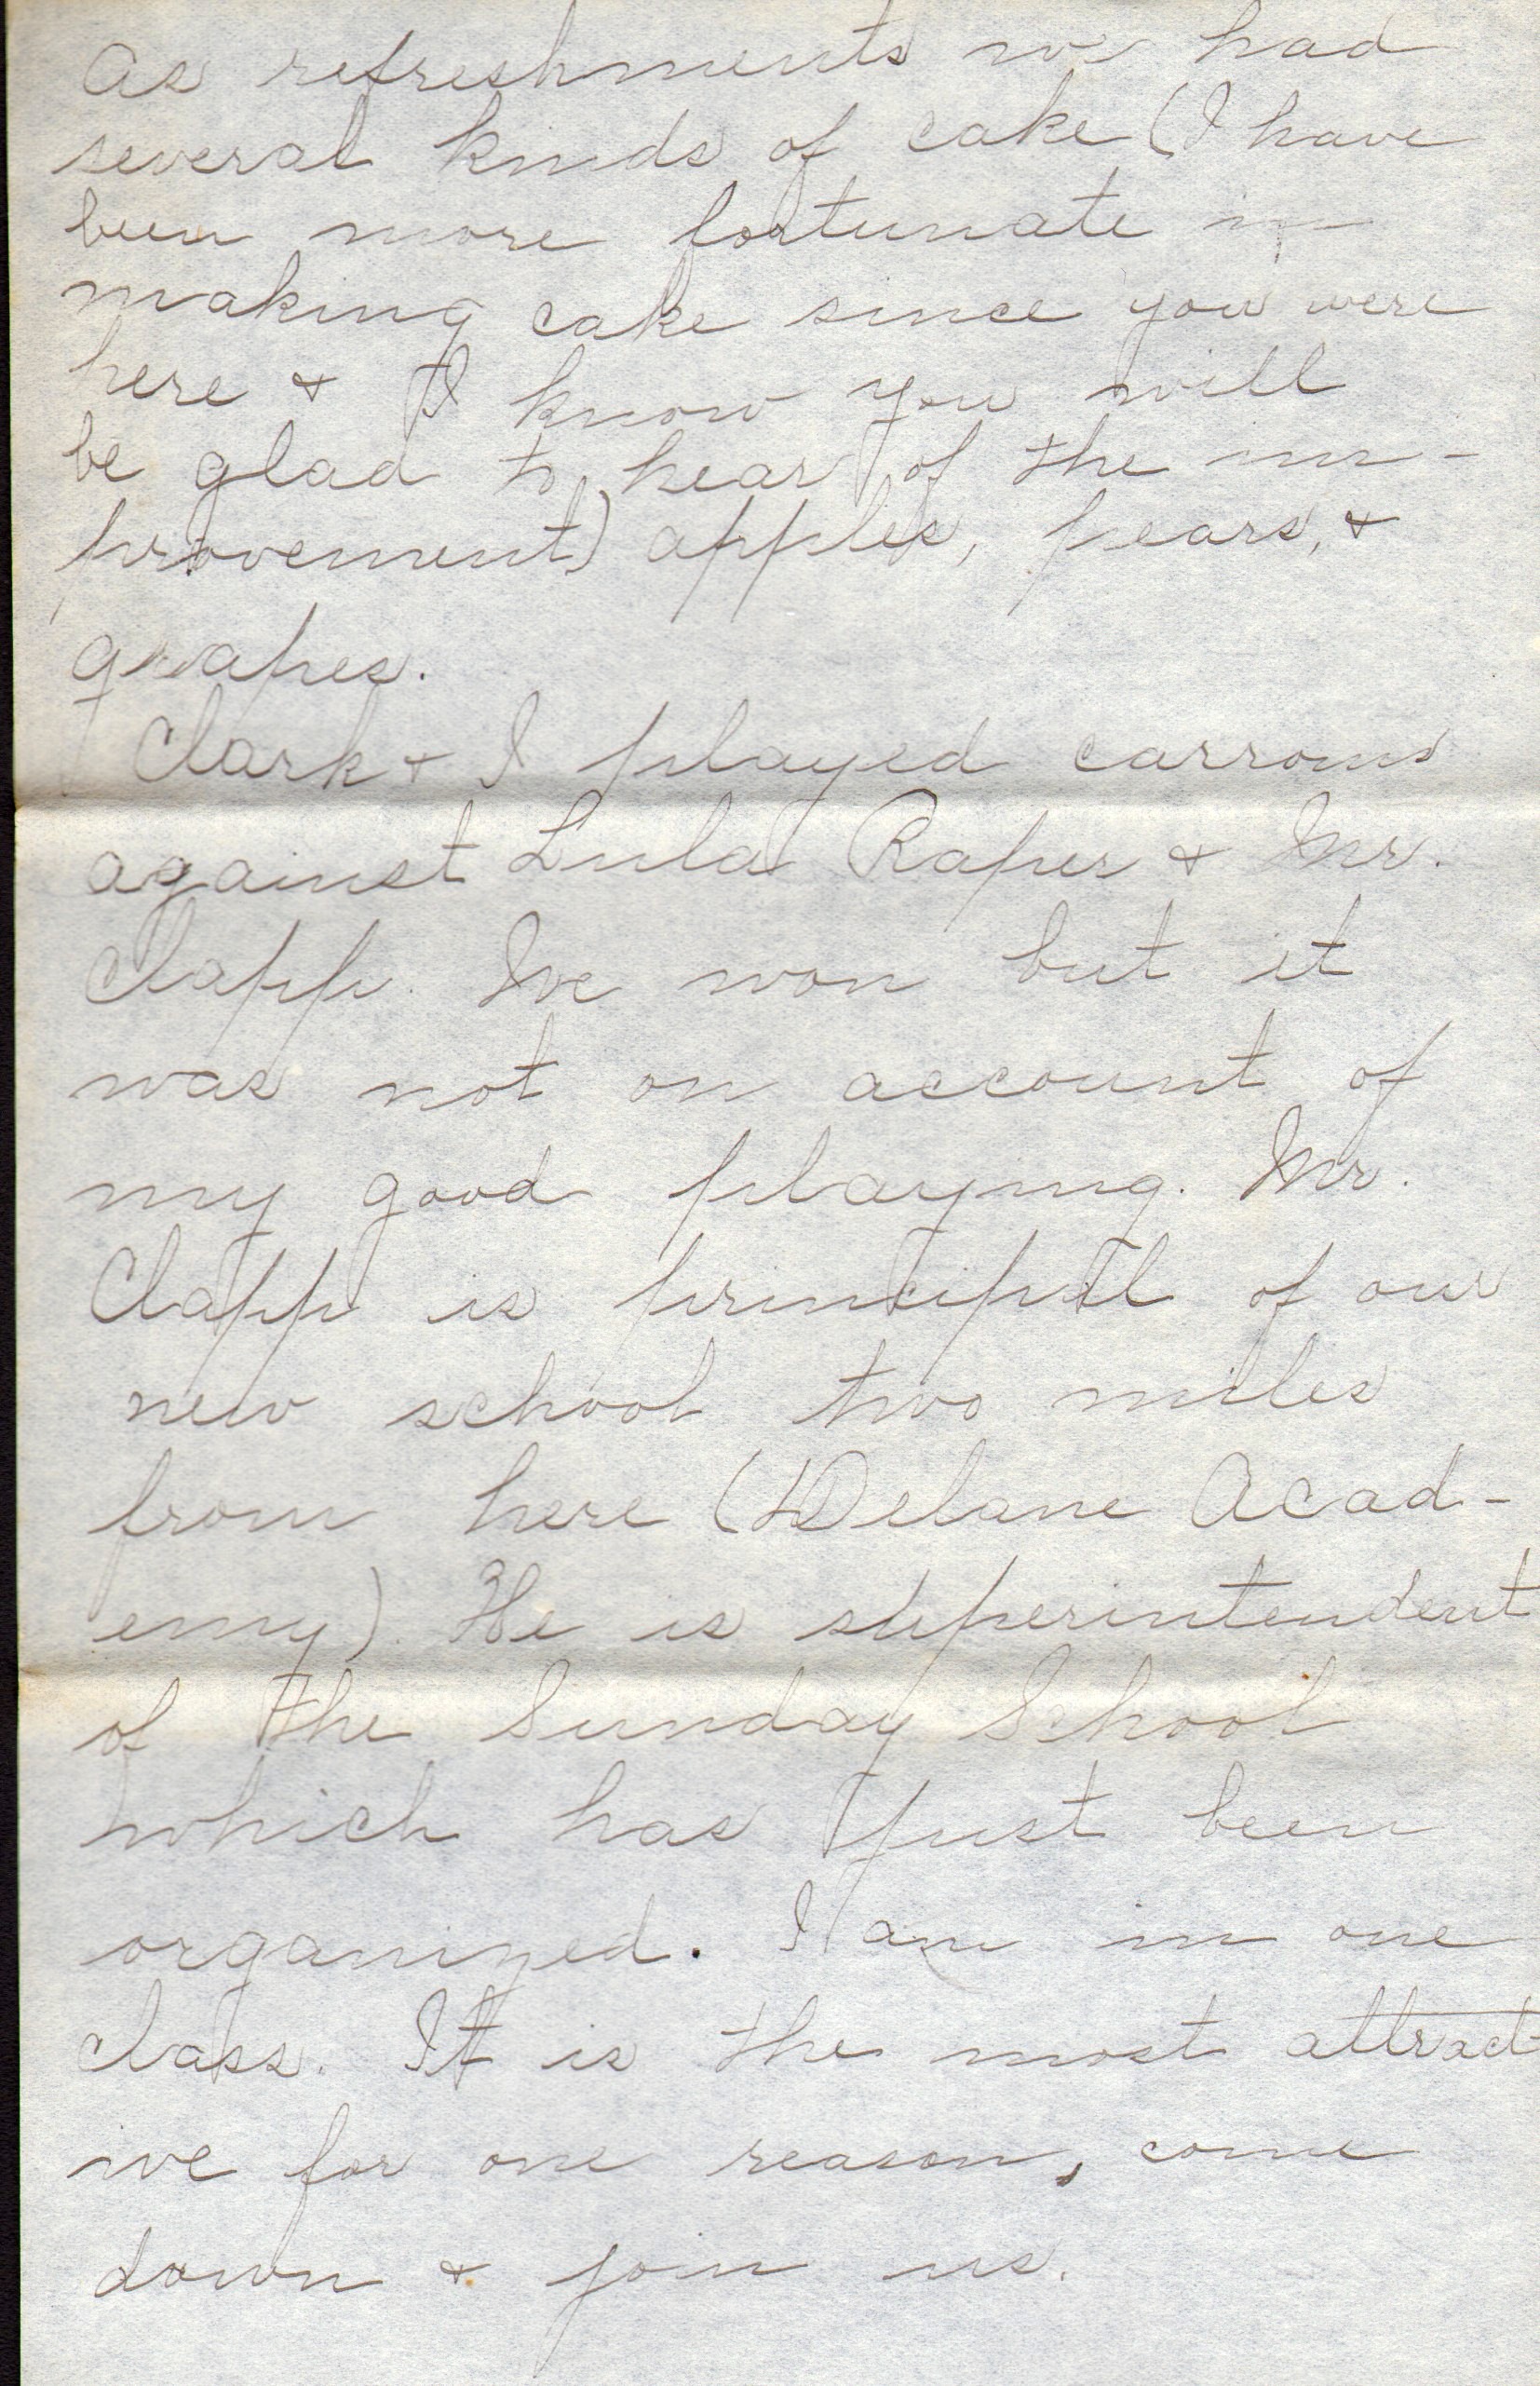 As refreshments we had
several kinds of cake (I have
been more fortunate in
making cake since you were
here & I know you will
be glad to hear of the im-
provement) apples, pears, &
grapes.
Clark & I played carroms
against Lula Raper & Mr.
Clapp. We won but it
was not on account of
my good playing. Mr.
Clapp is principal of our
new school two miles
from here (Delane Acad-
emy). He is superintendent
of the Sunday School
which has just been
organized. I am in one
class. It is the most attract-
ive for one reason, come
down & join us.